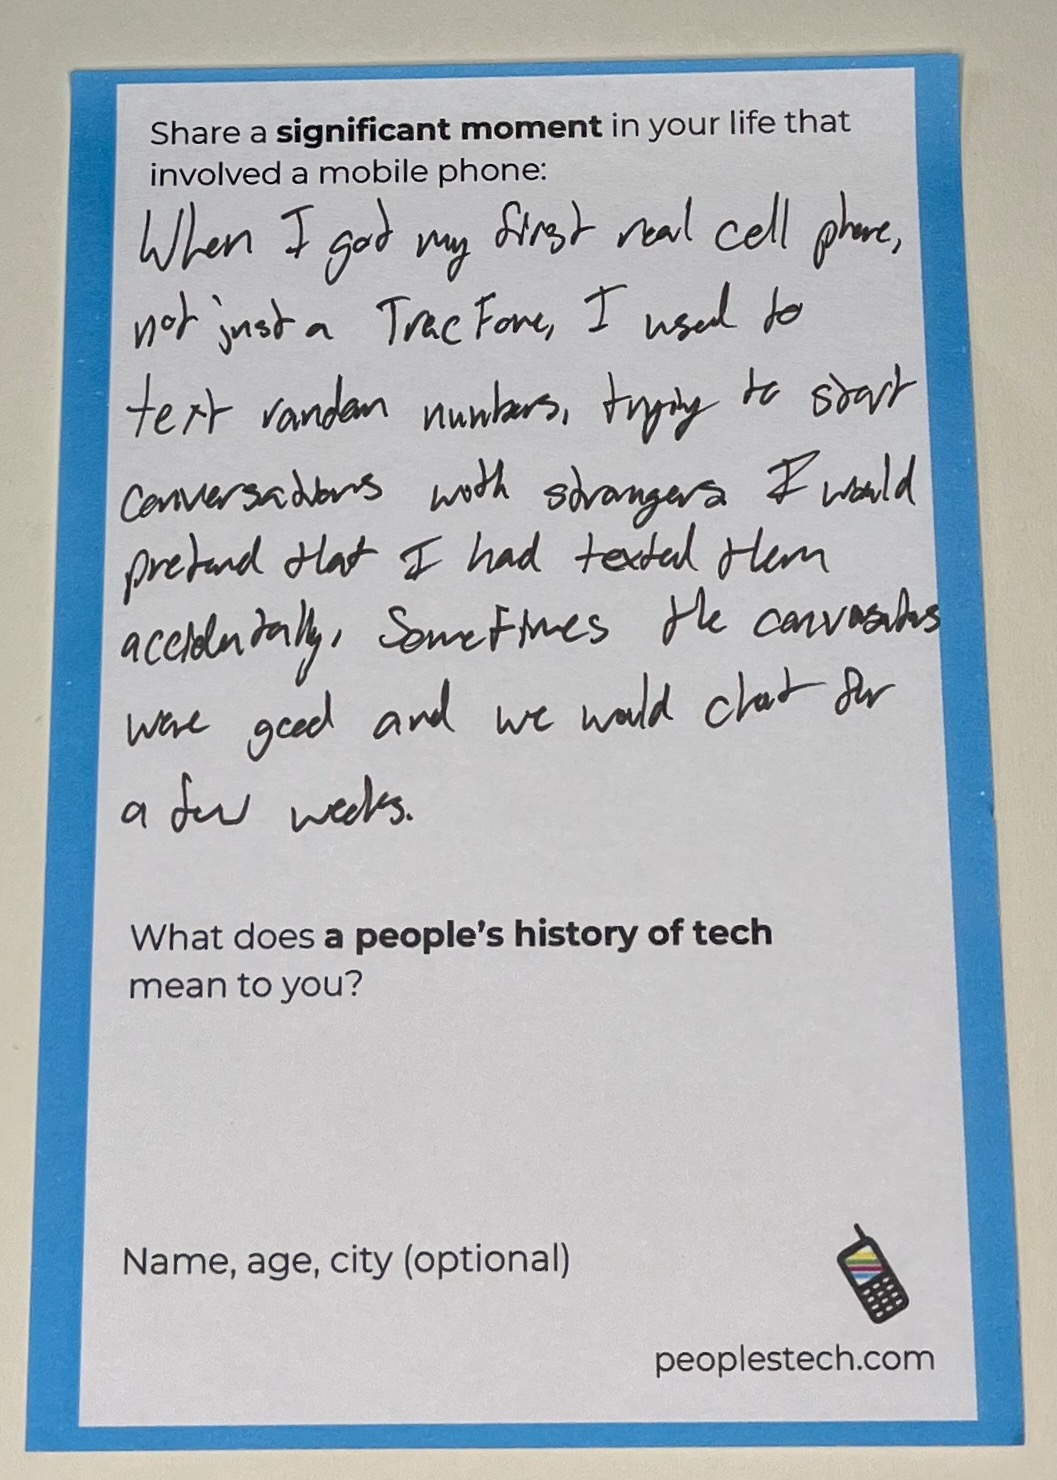 Share a significant moment in your life that
involved a mobile phone:
When I got my first real cell phone,
not just a TracFone, I used to
text random numbers, trying to start
conversations with strangers I would
pretend that I had texted them
accidentally. Sometimes the conversations
were good and we would chat for
a few weeks.
What does a people's history of tech
mean to you?
Name, age, city (optional)
peoplestech.com